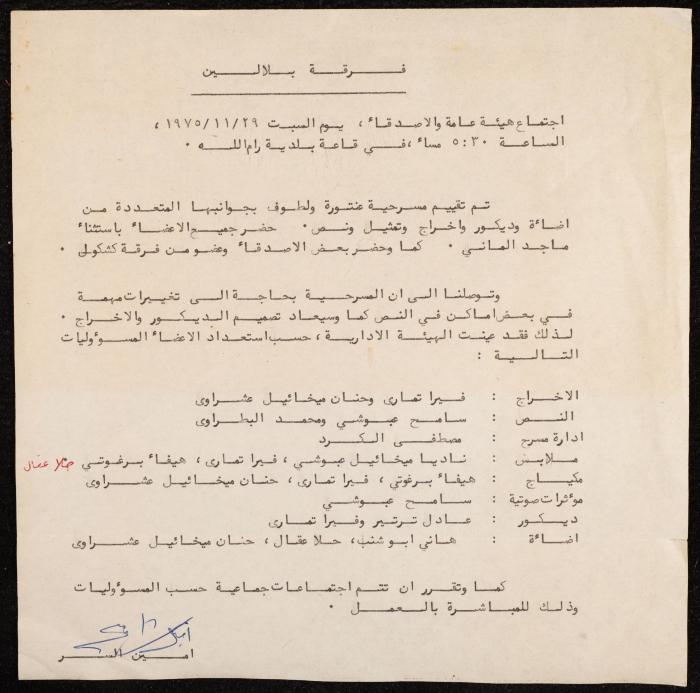 فرقة بلالين
اجتماع هيئة عامة والاصدقاء ، يوم السبت ١٩٧٥/١١/٢٩ ،
الساعة ٥:٣٠ مساء ، في قاعة بلدية رام الله .
تم تقييم مسرحية عنتورة ولطوف بجوانبها المتعددة من
اضاءة وديكور واخراج وتمثيل ونص . حضر جميع الاعضاء باستثناء
ماجد الماني . كما وحضر بعض الاصدقاء وعضو من فرقة كشكول .
وتوصلنا الى ان المسرحية بحاجة الى تغييرات مهمة
في بعض اماكن في النص كما وسيعاد تصميم الديكور والاخراج .
لذلك فقد عينت الهيئة الادارية ، حسب استعداد الاعضاء المسوؤليات
التالية :
الاخراج : فيرا تماري وحنان ميخائيل عشراوي
النص : سامح عبوشي ومحمد البطراوي
ادارة مسرح : مصطفى الكرد
ملابس : ناديا ميخائيل عبوشي ، فيرا تماري ، هيفاء برغوتي حلا عقال
مكياج : هيفاء برغوتي ، فيرا تماري ، حنان ميخائيل عشراوي
موئثرات صوتية : سامح عبوشي
ديكور : عادل ترتير وفيرا تماري
اضاءة : هاني ابو شنب ، حلا عقال ، حنان ميخائيل عشراوي
كما وتقرر ان تتم اجتماعات جماعية حسب المسوؤليات
وذلك للمباشرة بالعمل .
امين السر